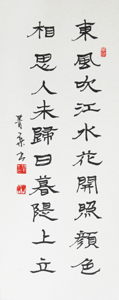 東風吹江水花開照顏色
相思人未歸日暮隄上立